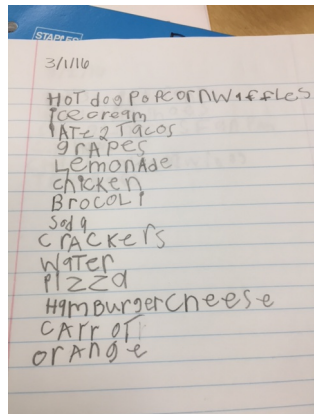 STAPLES
3/1/16
HOT dog PoPcornWaffles
Ice cream
IATe 2 Tacos
grAPes
LemonAde
chicken
BrocoLI
Soda
crAckers
WaTer
PIZZa
HamBurgercheese
cArroT
orAnge